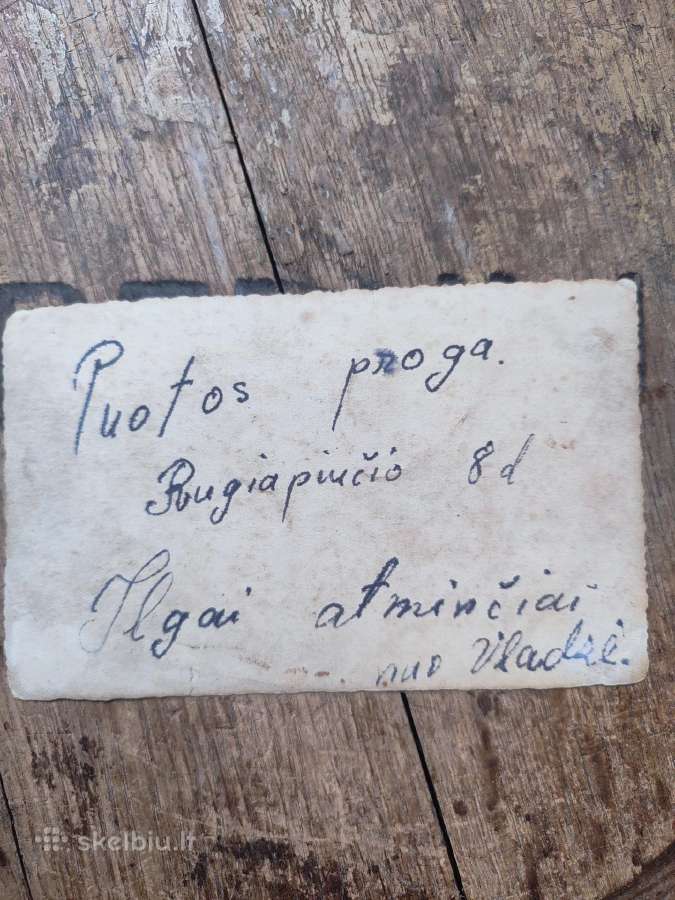 Puotos proga.
Rugiapiučio 8 d
Ilgai atminčiai
nuo Vladės.
skelbiu.lt